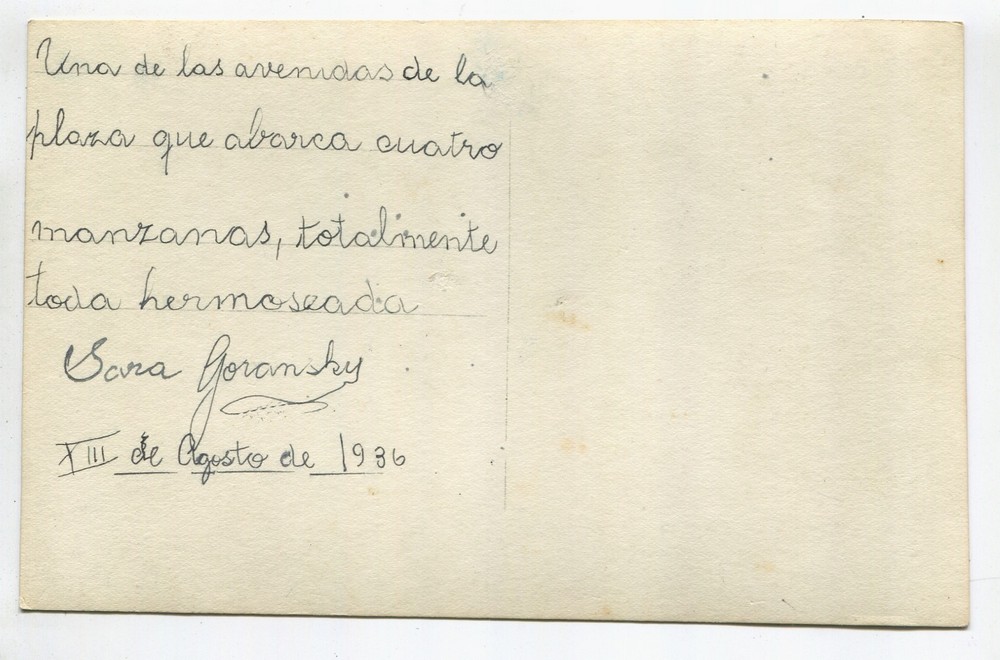 Una de las avenidas de la
plaza que abarca cuatro
manzanas, totalmente
toda hermoseada
Sara Goransky
XIII de Agosto de 1936